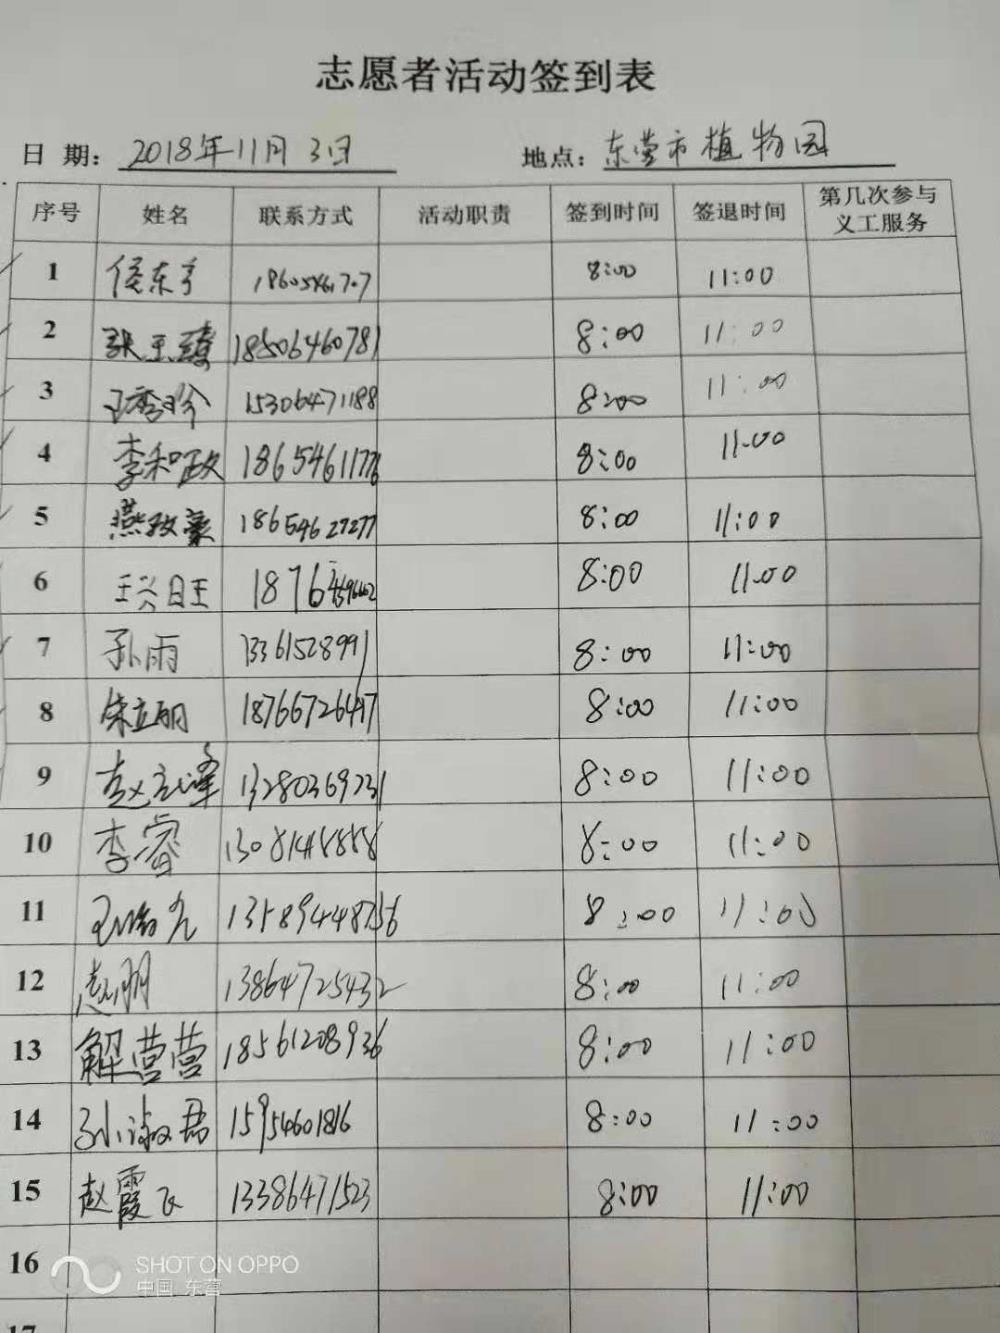 志愿者活动签到表
日 期: 2018年11月3日 地点: 东营市植物园
序号 姓名 联系方式 活动职责 签到时间 签退时间 第几次参与义工服务
1 侯东亭 8:00 11:00
2 张玉臻 18506460781 8:00 11:00
3 王秀珍 15306471188 8:00 11:00
4 李和政 8:00 11:00
5 燕政豪 18654627277 8:00 11:00
6 王兴旺 8:00 11:00
7 孙雨 13361528991 8:00 11:00
8 朱立丽 8:00 11:00
9 赵立峰 13280369231 8:00 11:00
10 李睿 8:00 11:00
11 8:00 11:00
12 13864725432 8:00 11:00
13 解营营 18561208936 8:00 11:00
14 孙淑君 15954601816 8:00 11:00
15 赵霞飞 13386471523 8:00 11:00
16
17
SHOT ON OPPO
中国 东营